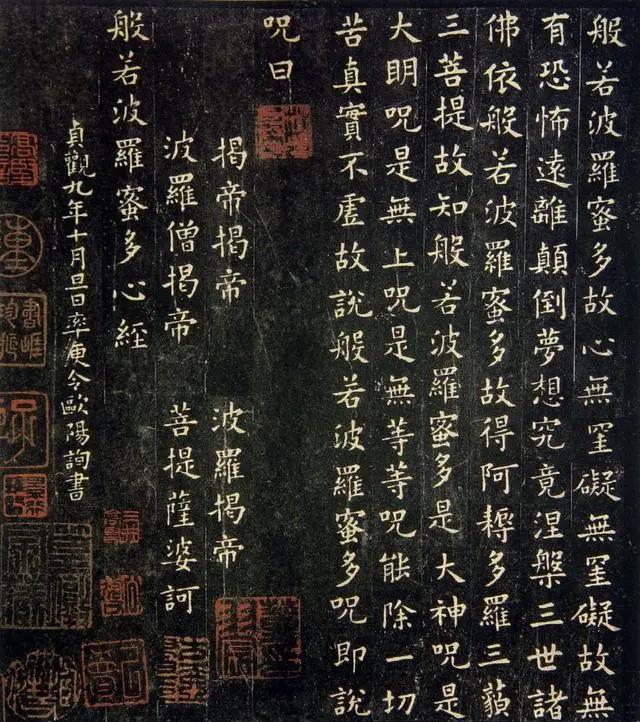 般若波羅蜜多故心無罣礙無罣礙故無
有恐怖遠離顛倒夢想究竟涅槃三世諸
佛依般若波羅蜜多故得阿耨多羅三藐
三菩提故知般若波羅蜜多是大神咒是
大明咒是無上咒是無等等咒能除一切
苦真實不虛故說般若波羅蜜多咒即說
咒曰
揭帝揭帝　波羅揭帝
波羅僧揭帝　菩提薩婆訶
般若波羅蜜多心經
貞觀九年十月旦日率更令歐陽詢書